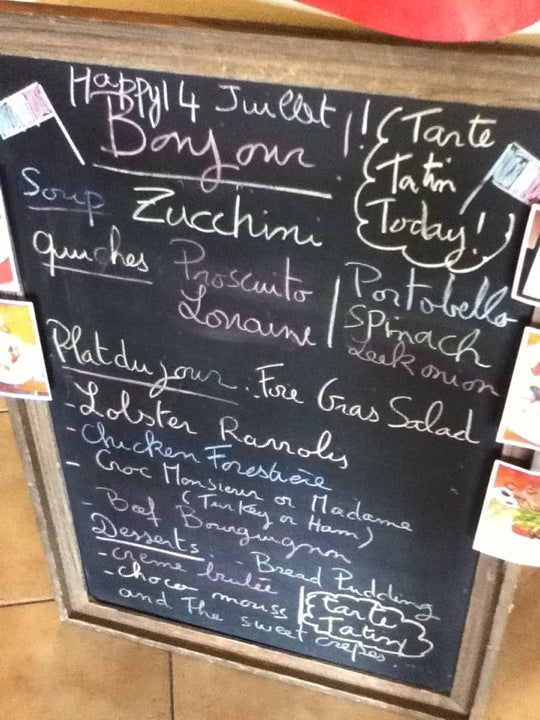 Happy 14 Juillet !!
Bonjour
Tarte
Tatin
Today!
Soup Zucchini
Quiches Proscuito
Loraine
Portobello
Spinach
Leek onion
Plat du jour . Foie Gras Salad
- Lobster Raviolis
- Chicken Forestière
- Croc Monsieur or Madame
(Turkey or Ham)
- Boef Bourguignon
Desserts. - Bread Pudding
- creme brulée
- choco mousse
Tarte
Tatin
and The sweet crepes...